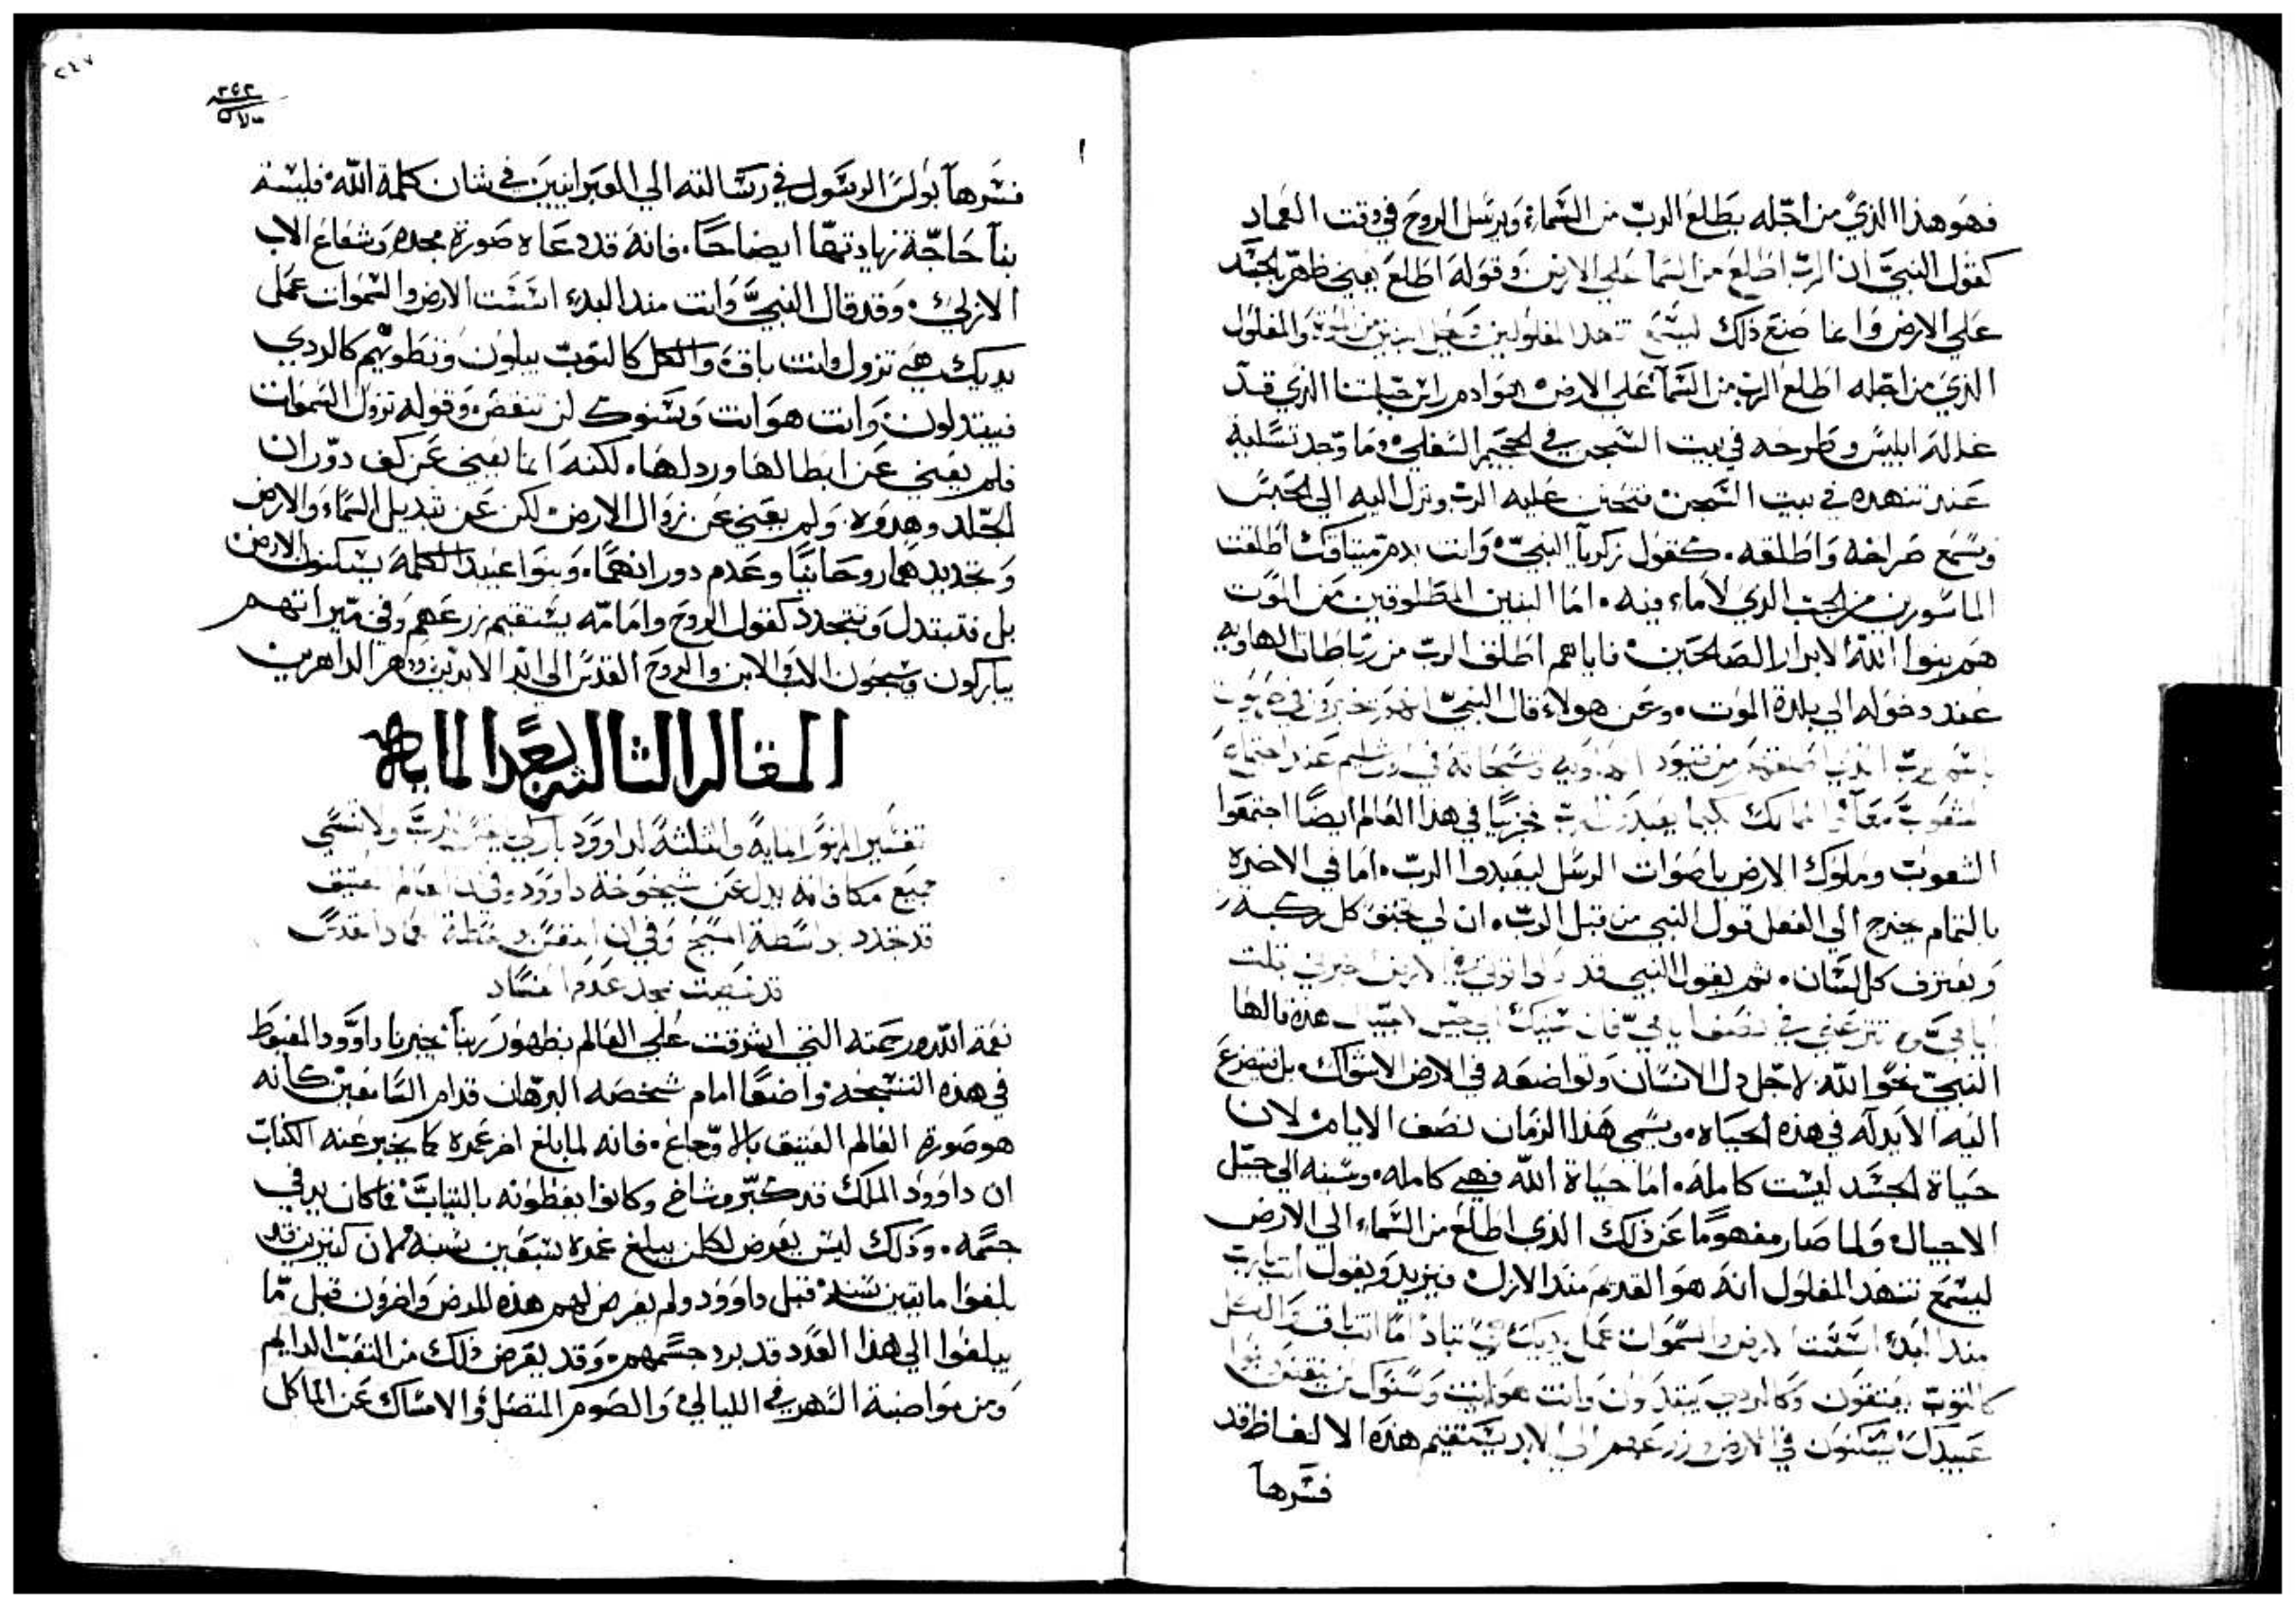 فهو هذا الذي من اجله يطلع الرب من السماء ويرسل الروح في وقت العماد
كقول النبي ان الرب اطلع من السما علي الارض وقوله اطلع يعني ظهر بالجسد
علي الارض وانما صنع ذلك ليسمع تنهد المغلولين والمغلول
الذي من اجله اطلع الرب من السما علي الارض هو ادم راس جبلتنا الذي قد
غلله ابليس وطرحه في بيت السجن في الجحيم السفلي وما وجد تسليه
عند تنهده في بيت السجن فتحنن عليه الرب ونزل اليه الي الحبس
وسمع صراخه واطلقه. كقول زكريا النبي وانت بدم ميثاقك اطلقت
الماسورين من الجب الذي لا ماء فيه. اما البنين المطلوقين من الموت
هم بنوا الله الابرار الصالحين فاياهم اطلق الرب من رباطات الهاويه
عند دخوله الي بلدة الموت. وعن هولاء قال النبي انهم يخبرون في صهيون
باسم الرب من قيود الهاويه وتسبحاته في اورشليم عند اجتماع
الشعوب معا والممالك كيما يعبدون الرب فجزيا في هذا العالم ايضا اجتمعوا
الشعوب وملوك الارض باصوات الرسل ليعبدوا الرب. اما في الاخره
بالتمام يخرج الي الفعل قول النبي من قبل الرب. ان لي تجثوا كل ركبه
ويعترف كل لسان. ثم يقول النبي قد
ايامي لا تنزعني في نصف ايامي فان سنيك الي جيل الاجيال هذه قالها
النبي نحو الله لاجل ذل الانسان وتواضعه في الارض الاشواك بل يتضرع
اليه الا يدله في هذه الحياه. ويسمي هذا الزمان نصف الايام لان
حياة الجسد ليست كامله. اما حياة الله فهي كامله. وسنيه الي جيل
الاجيال ولما صار مفهوما عن ذلك الذي اطلع من السماء الي الارض
ليسمع تنهد المغلول انه هو القديم منذ الازل فيزيد ويقول انت يارب
منذ البدء اسست الارض والسموات عمل يديك هي تباد اما انت باق والكل
كالثوب يعتقون وكالردي يتبدلون وانت هو انت وسنوك لن ينقصوا بنوا
عبيدك يسكنون في الارض وزرعهم الي الابد يستقيم هذه الالفاظ قد
فسرها
٢٤٧
٢٥٢
فسرها بولس الرسول في رسالته الي العبرانيين في شان كلمة الله. فليسه
بنا حاجة نهاد تمها ايضاحا. فانه قد دعاه صورة مجده وشعاع الاب
الازلي. وقد قال النبي وانت منذ البدء اسست الارض والسموات عمل
يديك هي تزول وانت باق والكل كالثوب يبلون وتطويهم كالردي
فيبتدلون وانت هو انت وسنوك لن تنقص. وقوله تزول السموات
فلم يعني عن ابطالها وردلها. لكنه انما يعني عن كف دوران
الجلد وهدوه. ولم يعني عن زوال الارض لكن عن تبديل السماء والارض
وتجديدهما روحانيا وعدم دورانهما. وبنوا عبيد الكلمة يسكنون الارض
بل فتبتدل وتتجدد كقول الروح وامامه يستقيم زرعهم وفي ميراتهم
يباركون ويسبحون الاب والابن والروح القدس الي ابد الابدين ودهر الداهرين
المقاله الثالثه بعد المايه
تفسير المزمور المايه والثلثه لداوود باركي يا نفسي الرب ولا تنسي
جميع مكافاته يدل عن شيخوخة داوود وفي ان العالم العتيق
قد تجدد بواسطة المسيح وفي ان النفس بواسطة العماد المقدس
قد نهضت بمجد عدم الفساد
نعمة الله ورحمته التي اشرقت علي العالم بظهور ربنا يخبرنا داوود المغبوط
في هذه التسبحه واضعا امام شخصه البرهان قدام السامعين كانه
هو صورة العالم العتيق بالاوجاع. فانه لما بلغ اخر عمره كما يخبر عنه الكتاب
ان داوود الملك قد كبر وشاخ وكانوا يغطونه بالتياب فما كان يدفي
جسمه. وذلك ليس يعرض لكل من يبلغ عمره سبعين سنه لان كتيرين قد
بلغوا مايتين سنه قبل داوود ولم يعرض لهم هذه المرض واخرون قبل ما
يبلغوا الي هذا العدد قد برد جسمهم. وقد يعرض ذلك من التعب الدايم
ومن مواضبة السهر في الليالي والصوم المتصل والامساك عن الماكل